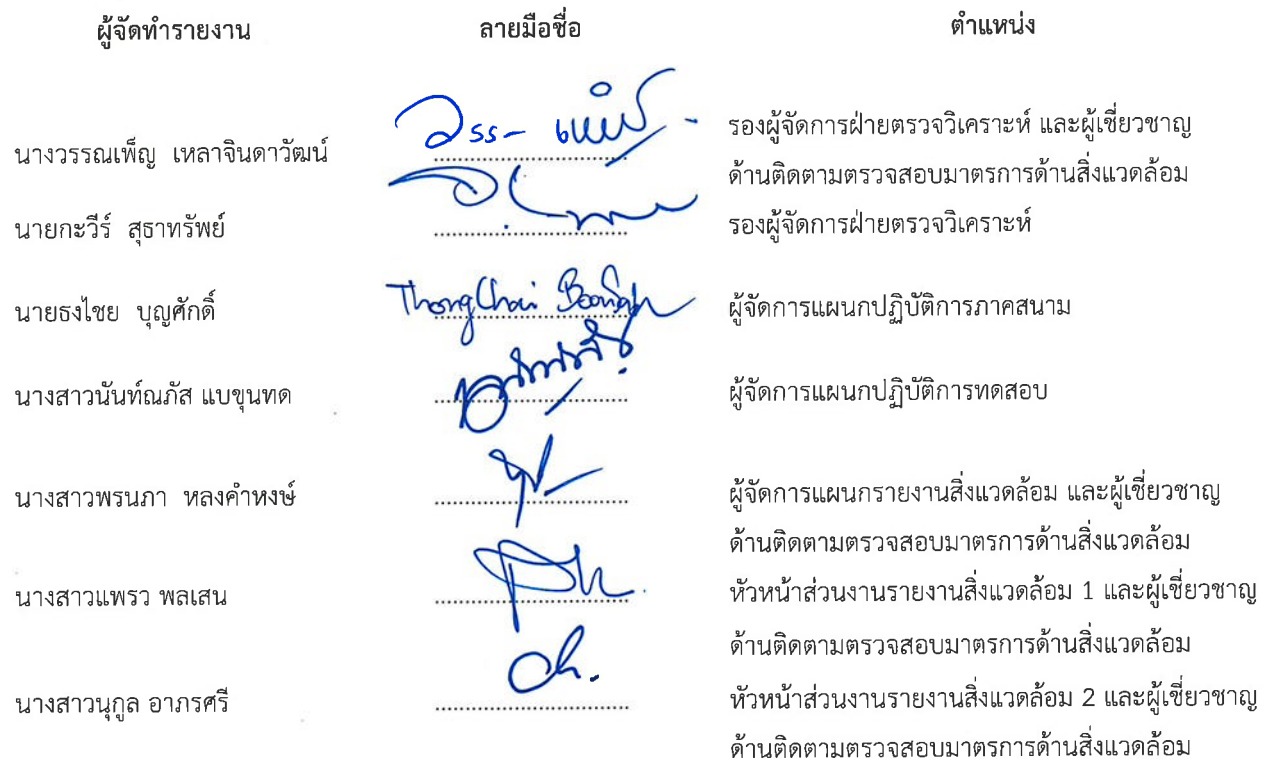 ผู้จัดทำรายงาน ลายมือชื่อ ตำแหน่ง
วรร- เพ็ญ
นางวรรณเพ็ญ เหลาจินดาวัฒน์ รองผู้จัดการฝ่ายตรวจวิเคราะห์ และผู้เชี่ยวชาญ
ด้านติดตามตรวจสอบมาตรการด้านสิ่งแวดล้อม
นายกะวีร์ สุธาทรัพย์ รองผู้จัดการฝ่ายตรวจวิเคราะห์
นายธงไชย บุญศักดิ์ Thongchai Boonsak ผู้จัดการแผนกปฏิบัติการภาคสนาม
นางสาวนันท์ณภัส แบขุนทด ผู้จัดการแผนกปฏิบัติการทดสอบ
นางสาวพรนภา หลงคำหงษ์ ผู้จัดการแผนกรายงานสิ่งแวดล้อม และผู้เชี่ยวชาญ
ด้านติดตามตรวจสอบมาตรการด้านสิ่งแวดล้อม
นางสาวแพรว พลเสน หัวหน้าส่วนงานรายงานสิ่งแวดล้อม 1 และผู้เชี่ยวชาญ
ด้านติดตามตรวจสอบมาตรการด้านสิ่งแวดล้อม
นางสาวนุกูล อาภรศรี หัวหน้าส่วนงานรายงานสิ่งแวดล้อม 2 และผู้เชี่ยวชาญ
ด้านติดตามตรวจสอบมาตรการด้านสิ่งแวดล้อม